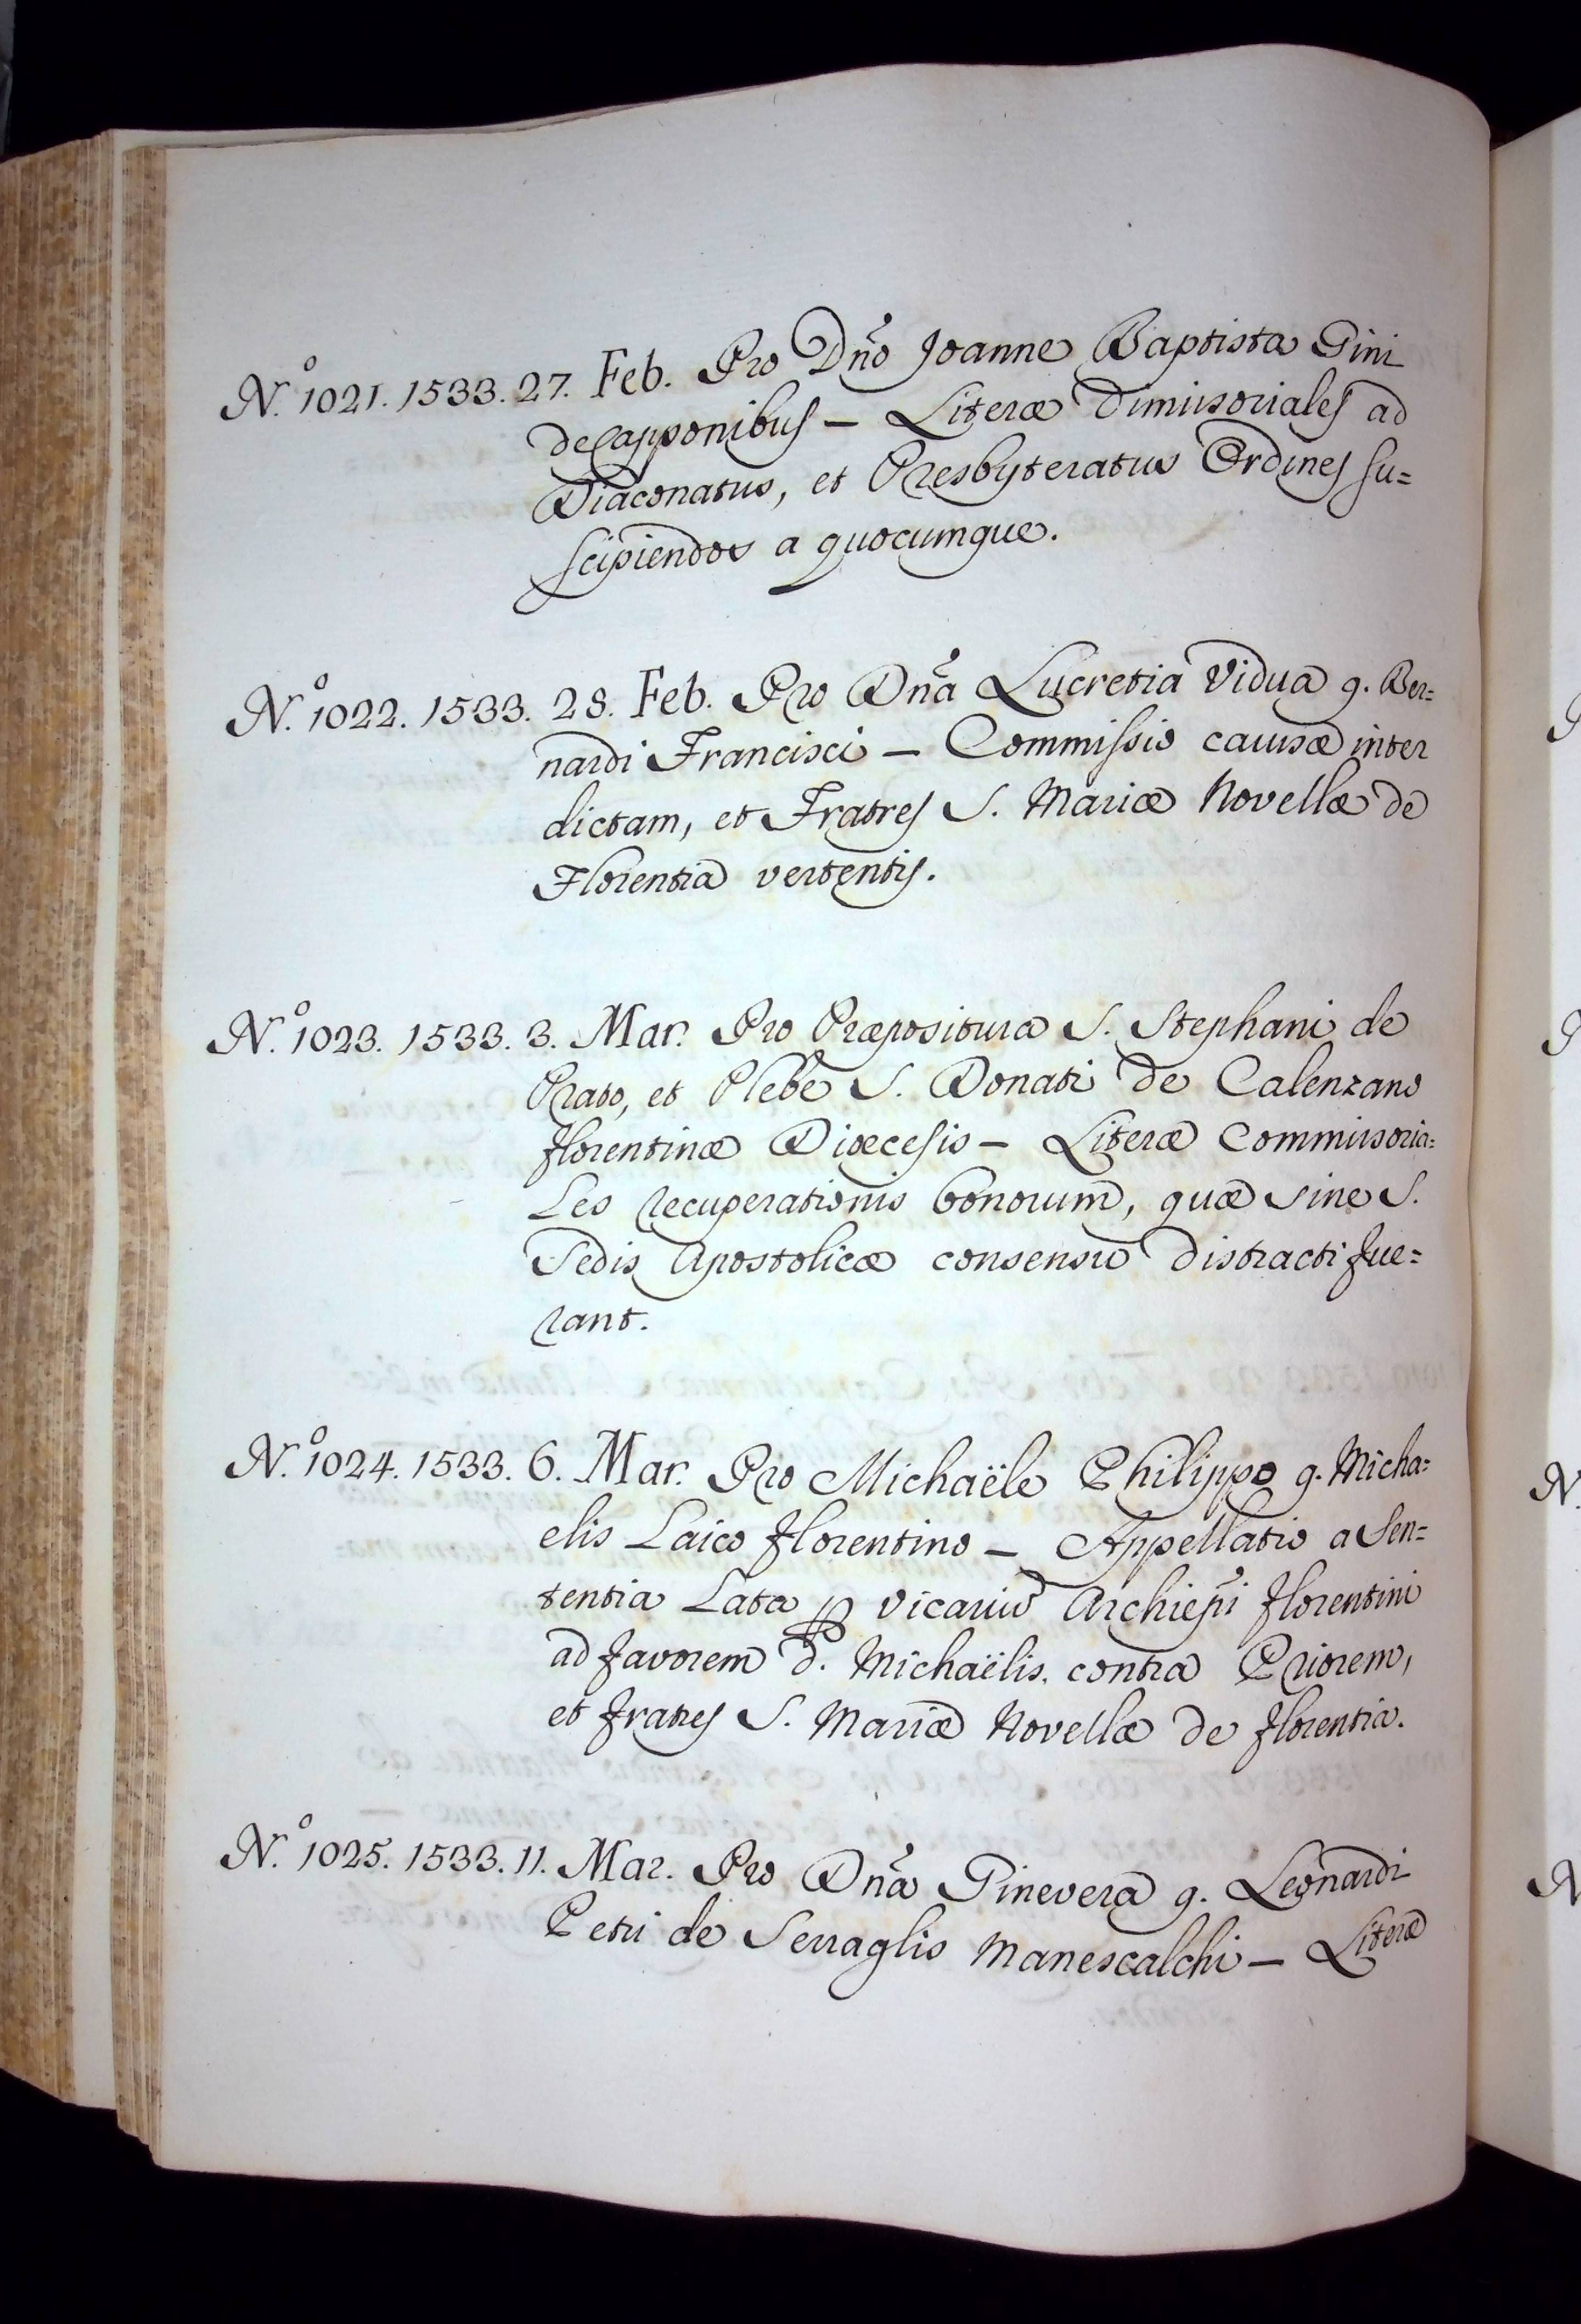 N.º 1021. 1533. 27. Feb. Pro Dño Joanne Baptista Gini
de Capponibus – Literæ Dimissoriales ad
Diaconatus, et Presbyteratus Ordines su=
scipiendos a quocumque.
N.º 1022. 1533. 28. Feb. Pro Dña Lucretia Vidua q. Ber=
nardi Francisci – Commissio causæ inter
dictam, et Fratres S. Mariæ Novellæ de
Florentia vertentis.
N.º 1023. 1533. 3. Mar. Pro Præpositura S. Stephani de
Prato, et Plebe S. Donati de Calenzano
florentinæ Diœcesis – Literæ Commissoria=
les recuperationis bonorum, quæ sine S.
Sedis Apostolicæ consensu distracti fue=
rant.
N.º 1024. 1533. 6. Mar. Pro Michaële Philippo q. Micha=
elis Laico florentino – Appellatio a Sen=
tentia Lata ꝑ Vicariū Archiep̃i florentini
ad favorem d. Michaëlis. contra Priorem,
et fratres S. Mariæ Novellæ de florentia.
N.º 1025. 1533. 11. Mar. Pro Dña Ginevera q. Leonardi
Petri de Serraglis Manescalchi – Literæ